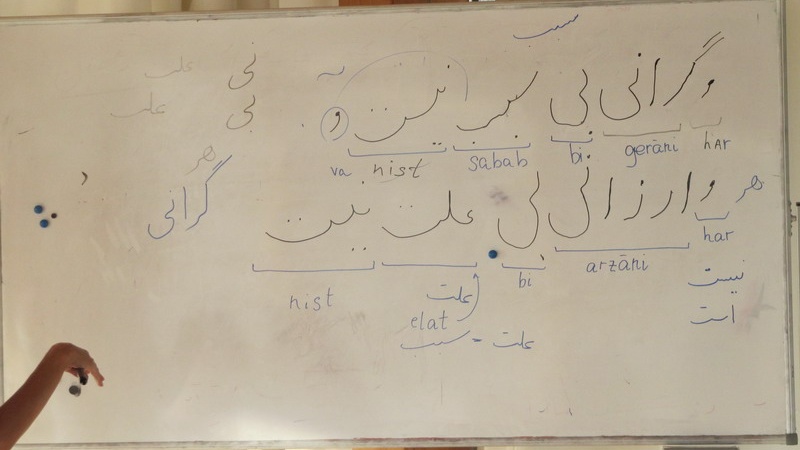 سبب
و گرانی بی سبب نیست و
har gerāni bi sabab nist va
نی علت
بی علت
هر
گرانی
هر و ارزانی بی علت نیست
har arzāni bi elat nist
علت
علت = سبب
نیست
است